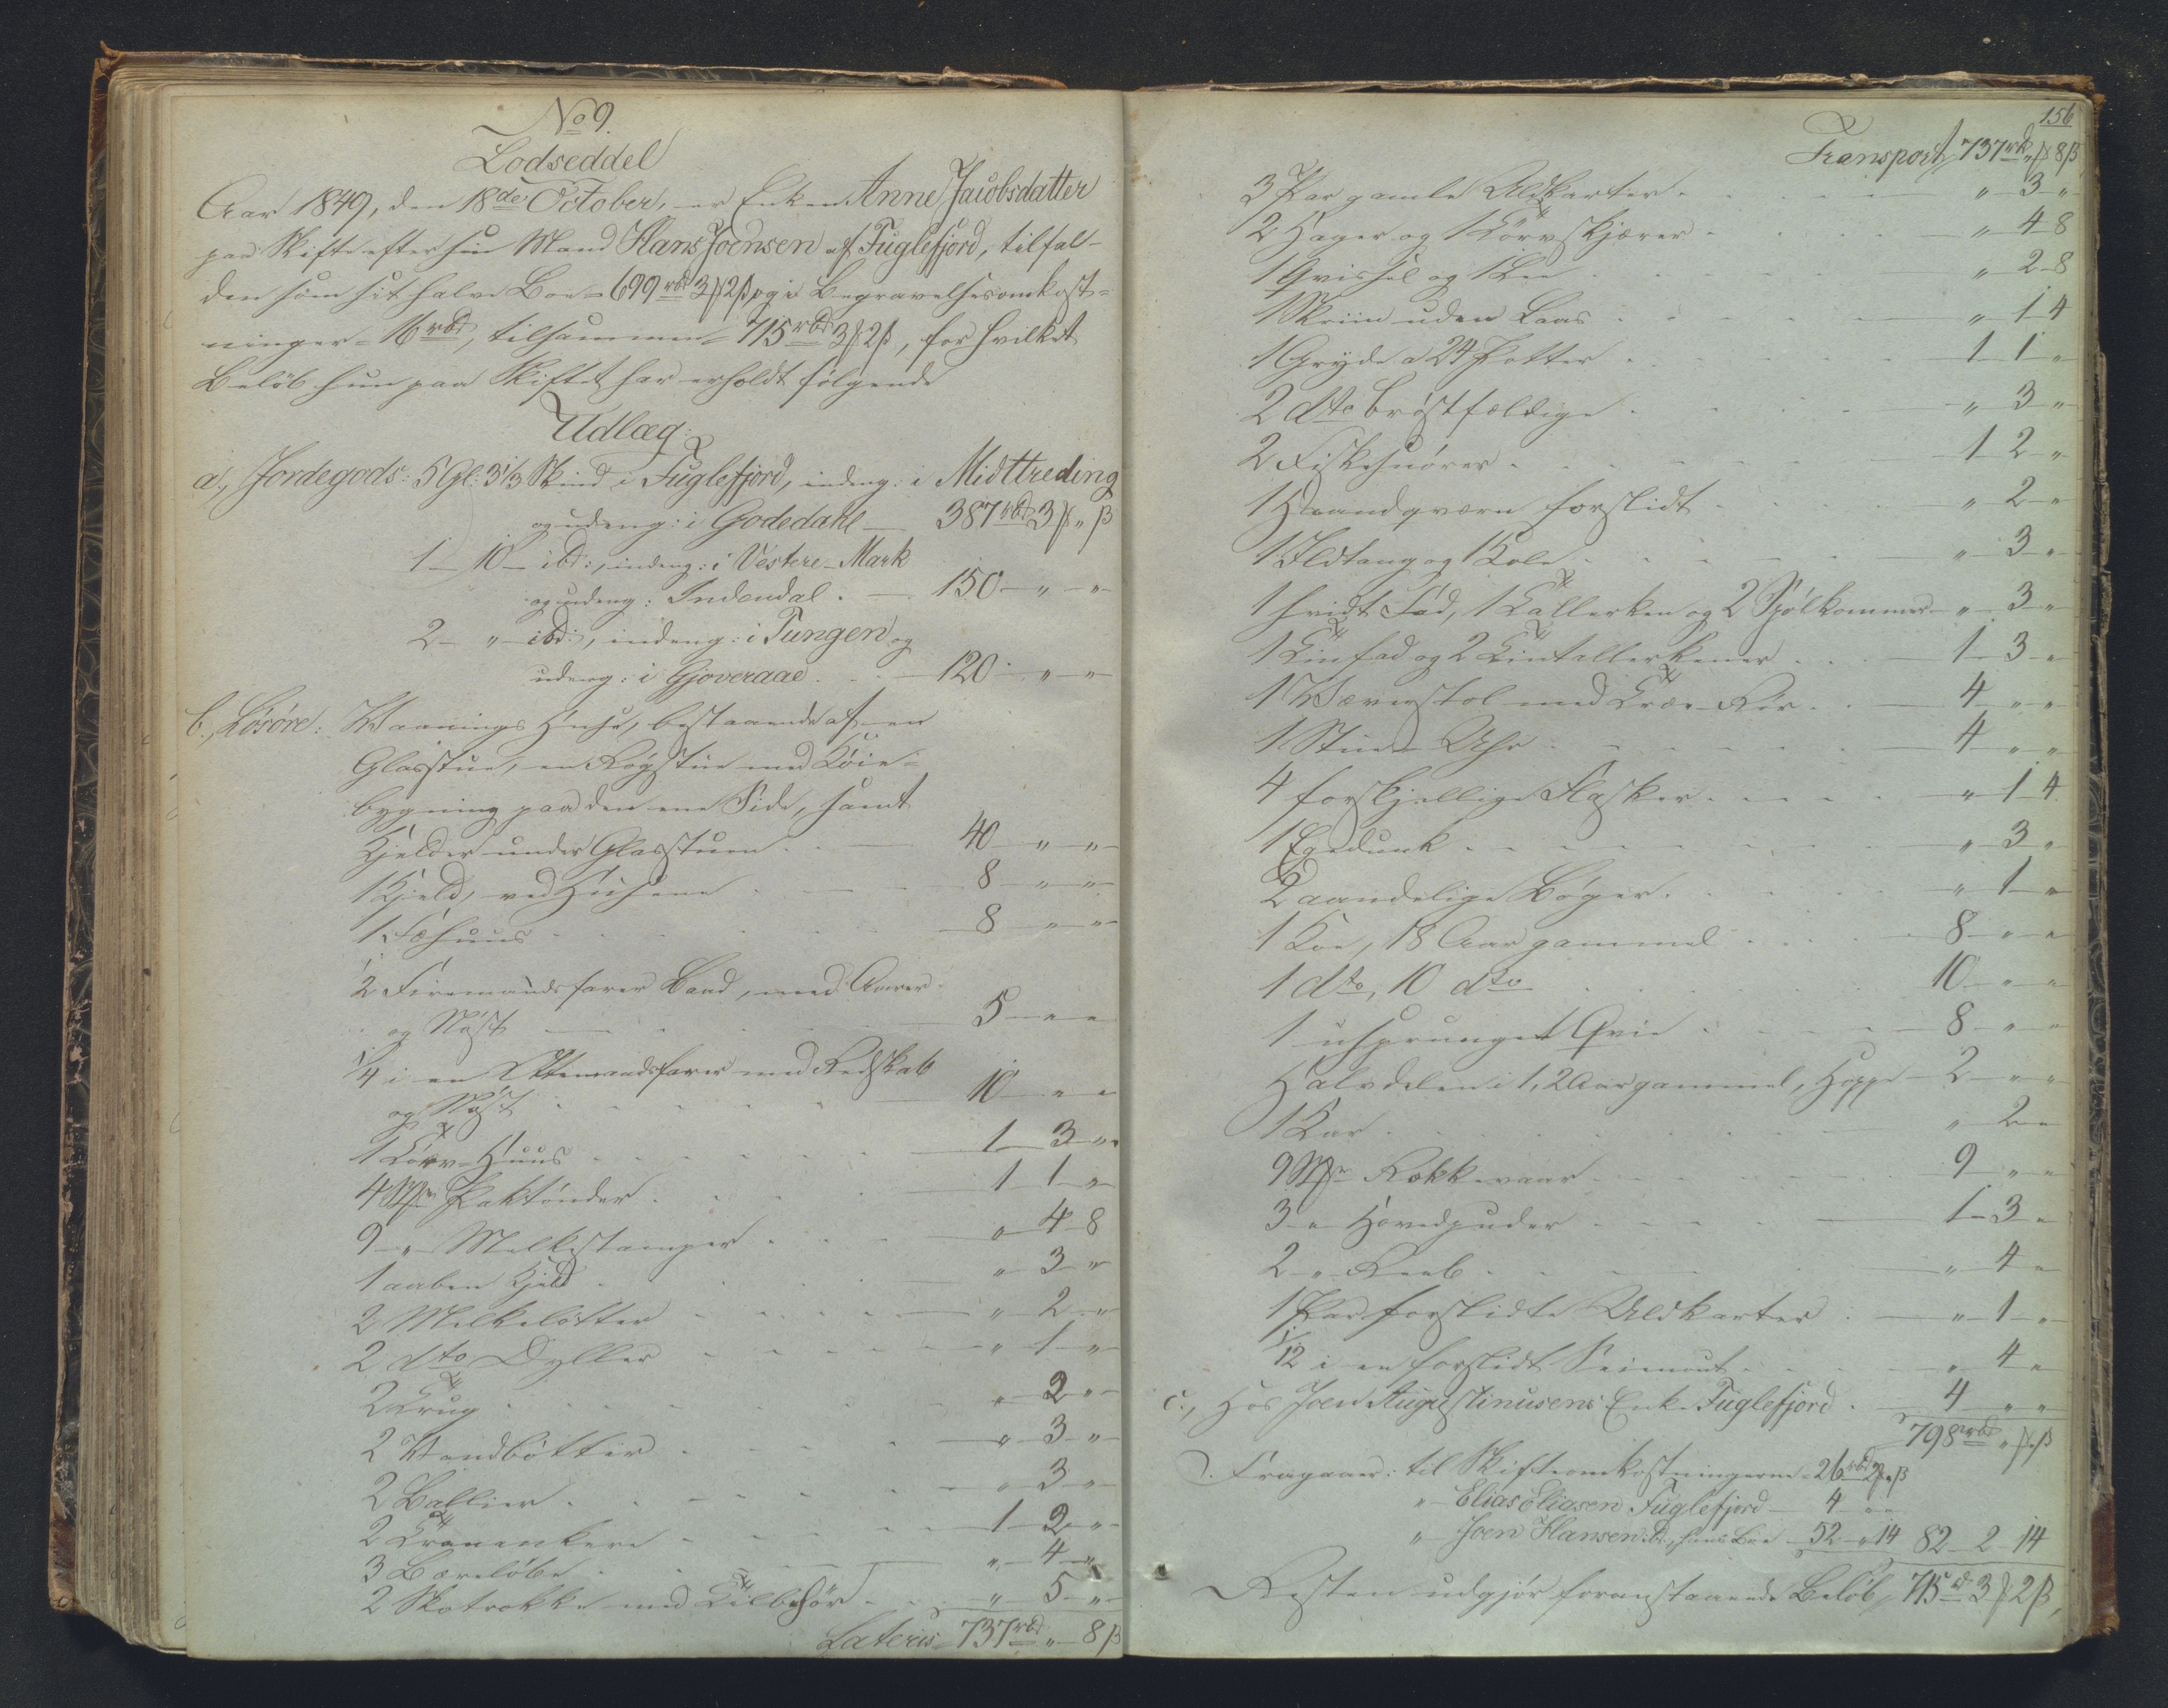 No 9.
Lodseddel
Aar 1849, den 18de October, er Enken Anne Jacobsdatter
paa Skifte efter sin Mand Hans Joensen af Fuglefjord, tilfal-
den som sit halve Boe = 699 rbd 3 ℳ 2 ß og i Begravelsesomkost-
ninger = 16 rbd, tilsammen = 715 rbd 3 ℳ 2 ß, for hvilket
Beløb hun paa Skiftet har erholdt følgende
Udlæg:
a., Jordegods: 5 Gl: 3 1/3 Skind i Fuglefjord, indeng: i Midttreding
og udeng: i Godedahl — 387 rbd 3 ℳ „ ß
1 — 10 — ibd:, indeng: i Vestere-Mark
og udeng: Indendal . — 150 — „ — „
2 — „ — ibd:, indeng: i Tungen og
udeng: i Gjoveraae . . — 120 — „ — „
b., Løsøre: Vaanings Huse, bestaaende af en
Glasstue, en Røgstue med Køie-
bygning paa den ene Side, samt
Kjelder under Glasstuen . — 40 — „ — „
1 Kjeld, ved Husene . — 8 — „ — „
1 Fæhuus . . . — 8 — „ — „
1/2 Firemandsfarer Baad, med Aarer
og Nøst — 5 — „ — „
1/4 i en Ottemandsfarer med Redskab
og Nøst . . . — 10 — „ — „
1 Törv-Huus . . . — 1 — 3 — „
4 Stkr Saktönder . . — 1 — 1 — „
9 — „ — Melkestamper . . — „ — 4 — 8
1 aaben Kjeld . . . — „ — 3 — „
2 Melkebøtter . . . — „ — 2 — „
2 dto Dyller . . . — „ — 1 — „
2 Trug . . . — „ — 2 — „
2 Vandbøtter . . . — „ — 3 — „
2 Ballier . . . — „ — 3 — „
2 Træankere . . . — 1 — 2 — „
3 Bæreløbe . . . — „ — 4 — „
2 Skotrokke med Tilbehør . . — „ — 5 — „
Lateris = 737 rbd „ — 8 ß
156
Transport, 737 rbd „ ℳ 8 ß
3 Par gamle Uldkarter . . . — „ — 3 — „
2 Hager og 1 Törvskjærer . . — „ — 4 — 8
1 Qvissel og 1 Lee . . . — „ — 2 — 8
1 Skriin uden Laas . . . — „ — 1 — 4
1 Gryde a 24 Potter . . . — 1 — 1 — „
2 dto brøstfældige . . . — „ — 3 — „
2 Fiskesnører . . . — 1 — 2 — „
1 Haandqværn forslidt . . . — „ — 2 — „
1 Ildtang og 1 Kole . . . — „ — 3 — „
1 hvidt Fad, 1 Tallerken og 2 Spölkommer — „ — 3 — „
1 Tinfad og 2 Tintallerkener . . — 1 — 3 — „
1 Væverstol med Træ-Rør . . — 4 — „ — „
1 Stue Uhr . . . — 4 — „ — „
4 forskjellige Flasker . . . — „ — 1 — 4
1 Egedunk . . . — „ — 3 — „
2 aandelige Bøger . . . — „ — 1 — „
1 Koe, 18 Aar gammel . . — 8 — „ — „
1 dto, 10 dto . . . — 10 — „ — „
1 usprunget Qvie . . . — 8 — „ — „
Halvdelen i 1, 2 Aar gammel, Hoppe — 2 — „ — „
1 Kar . . . — „ — 2 — „
9 Stkr Rokkevaar . . . — 9 — „ — „
3 — „ — Hovedpuder . . . — 1 — 3 — „
2 — „ — Reeb . . . — „ — 4 — „
1 Par forslidte Uldkarter . — „ — 1 — „
1/12 i en forslidt . . . — „ — 4 — „
c., Hos Joen Augustinusens Enke Fuglefjord . 4 — „ — „
798 rbd „ ℳ „ ß
Fragaaer: til Skifteomkostningerne = 26 rbd 2 ℳ „ ß
„ — Elias Eliasen Fuglefjord — 4 — „ — „
„ — Joen Hansen ibd:, hans Boe — 52 — „ — 14 82 — 2 — 14
Resten udgjør foranstaaende Beløb, 715 rbd 3 ℳ 2 ß,